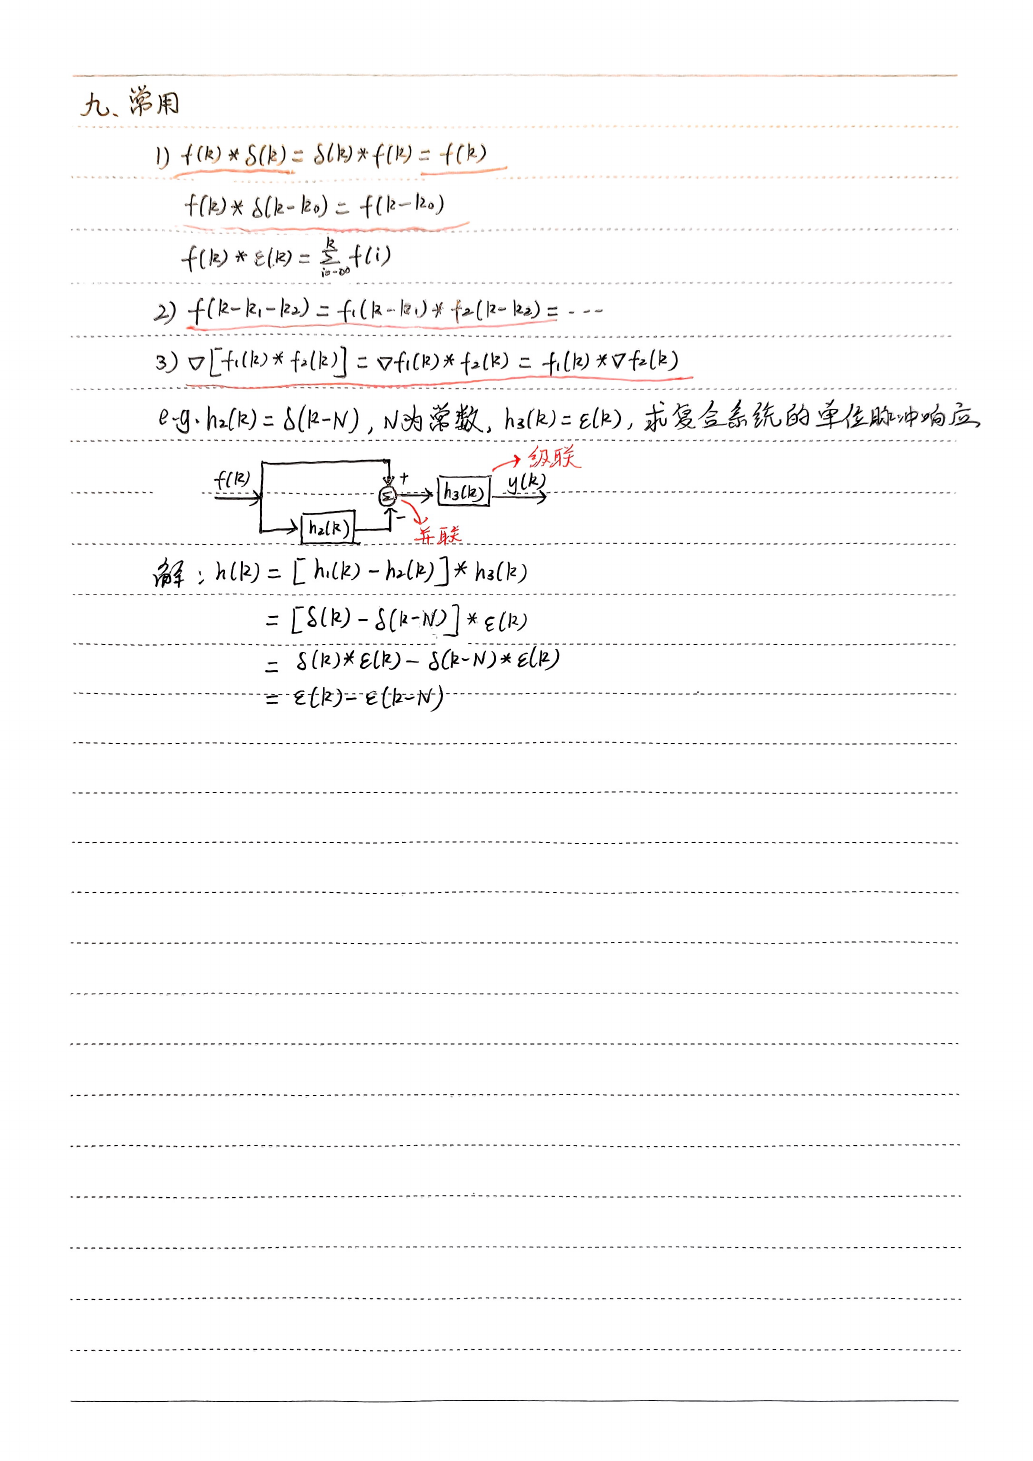 九、常用
1) f(k)*δ(k)=δ(k)*f(k)=f(k)
f(k)*δ(k-k₀)=f(k-k₀)
f(k)*ε(k)=∑_{i=-∞}^{k} f(i)
2) f(k-k₁-k₂)=f₁(k-k₁)*f₂(k-k₂)=---
3) ▽[f₁(k)*f₂(k)]=▽f₁(k)*f₂(k)=f₁(k)*▽f₂(k)
e.g. h₂(k)=δ(k-N), N为常数, h₃(k)=ε(k), 求复合系统的单位脉冲响应
级联
f(k) Σ + h₃(k) y(k)
h₂(k) - 并联
解：h(k)=[h₁(k)-h₂(k)]*h₃(k)
=[δ(k)-δ(k-N)]*ε(k)
=δ(k)*ε(k)-δ(k-N)*ε(k)
=ε(k)-ε(k-N)